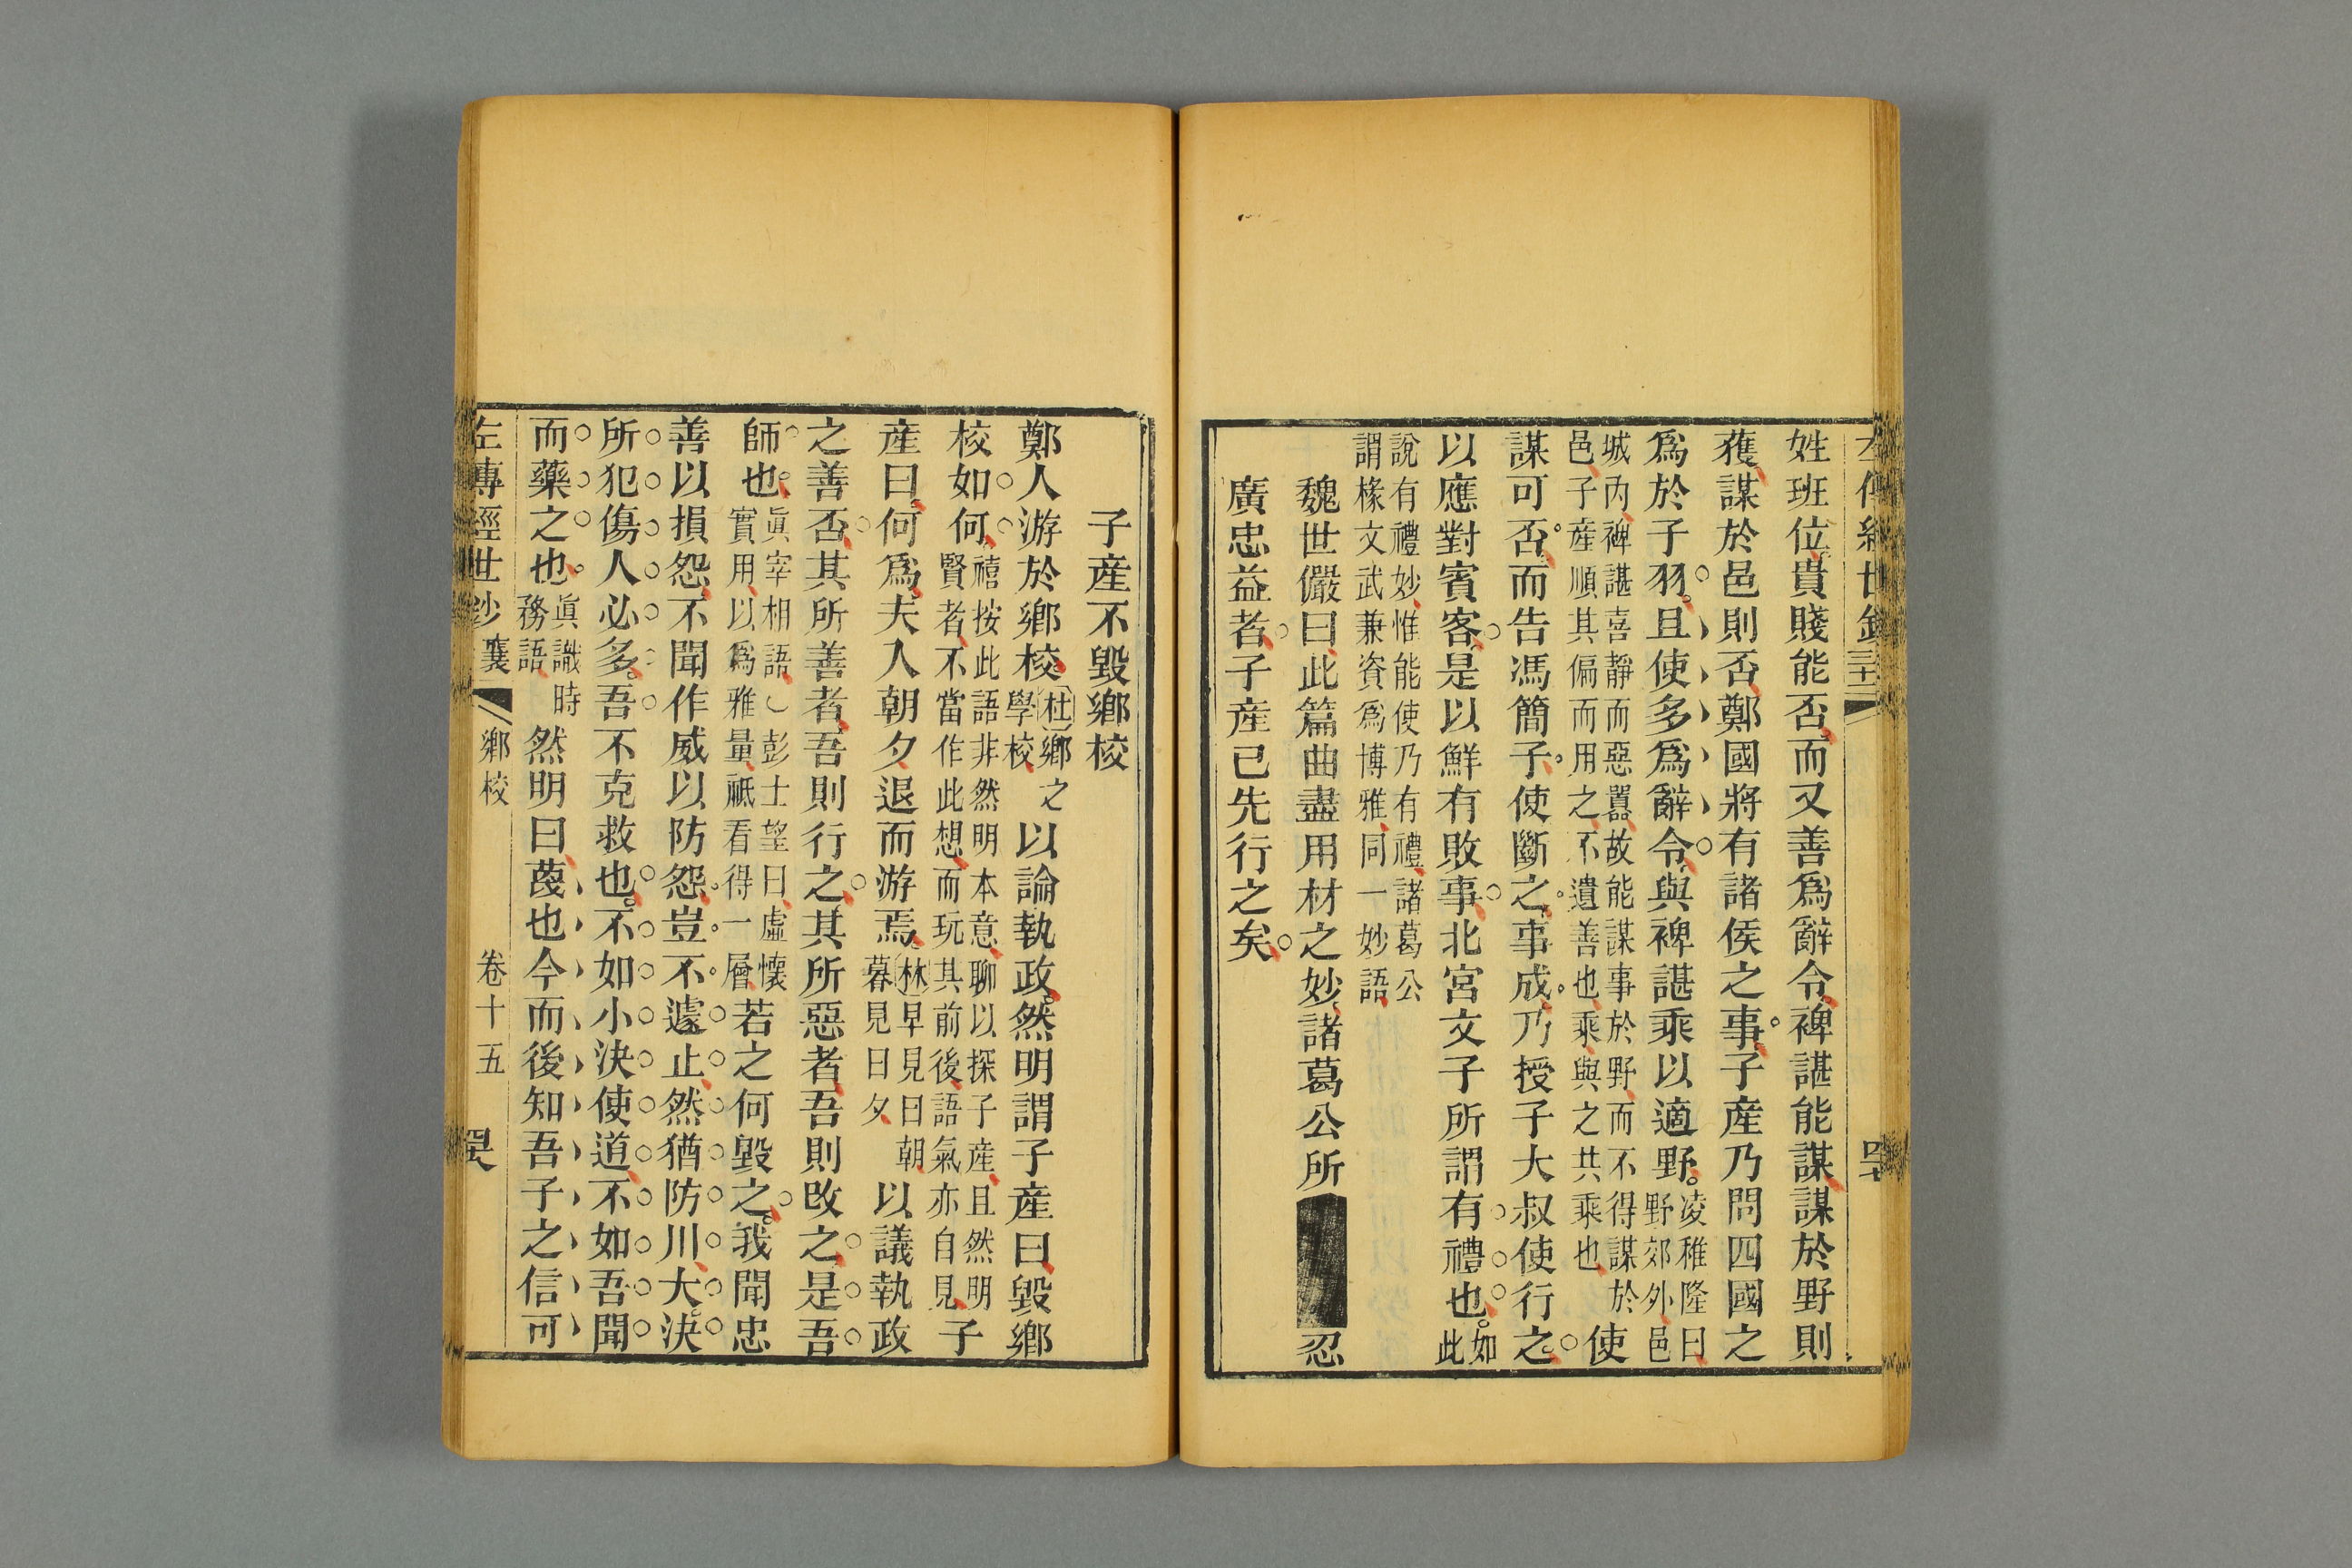 姓班位貴賤能否而又善爲辭令裨諶能謀謀於野則
獲謀於邑則否鄭國將有諸侯之事子產乃問四國之
爲於子羽且使多爲辭令與裨諶乘以適野凌稚隆曰野郊外邑
城內裨諶喜靜而惡囂故能謀事於野而不得謀於
邑子產順其偏而用之不遺善也乘與之共乘也使
謀可否而告馮簡子使斷之事成乃授子大叔使行之
以應對賓客是以鮮有敗事北宮文子所謂有禮也如此
說有禮妙惟能使乃有禮諸葛公
謂椽文武兼資爲博雅同一妙語
魏世儼曰此篇曲盡用材之妙諸葛公所忍
廣忠益者子產已先行之矣
子產不毀鄉校
鄭人游於鄉校杜鄉之學校以論執政然明謂子產曰毀鄉
校如何禧按此語非然明本意聊以探子產且然明賢者不當作此想而玩其前後語氣亦自見子
產曰何爲夫人朝夕退而游焉林早見曰朝暮見曰夕以議執政
之善否其所善者吾則行之其所惡者吾則改之是吾
師也眞宰相語彭士望曰虛懷實用以爲雅量祗看得一層若之何毀之我聞忠
善以損怨不聞作威以防怨豈不遽止然猶防川大決
所犯傷人必多吾不克救也不如小決使道不如吾聞
而藥之也眞識時務語然明曰蔑也今而後知吾子之信可
左傳經世鈔襄 鄉校 卷十五